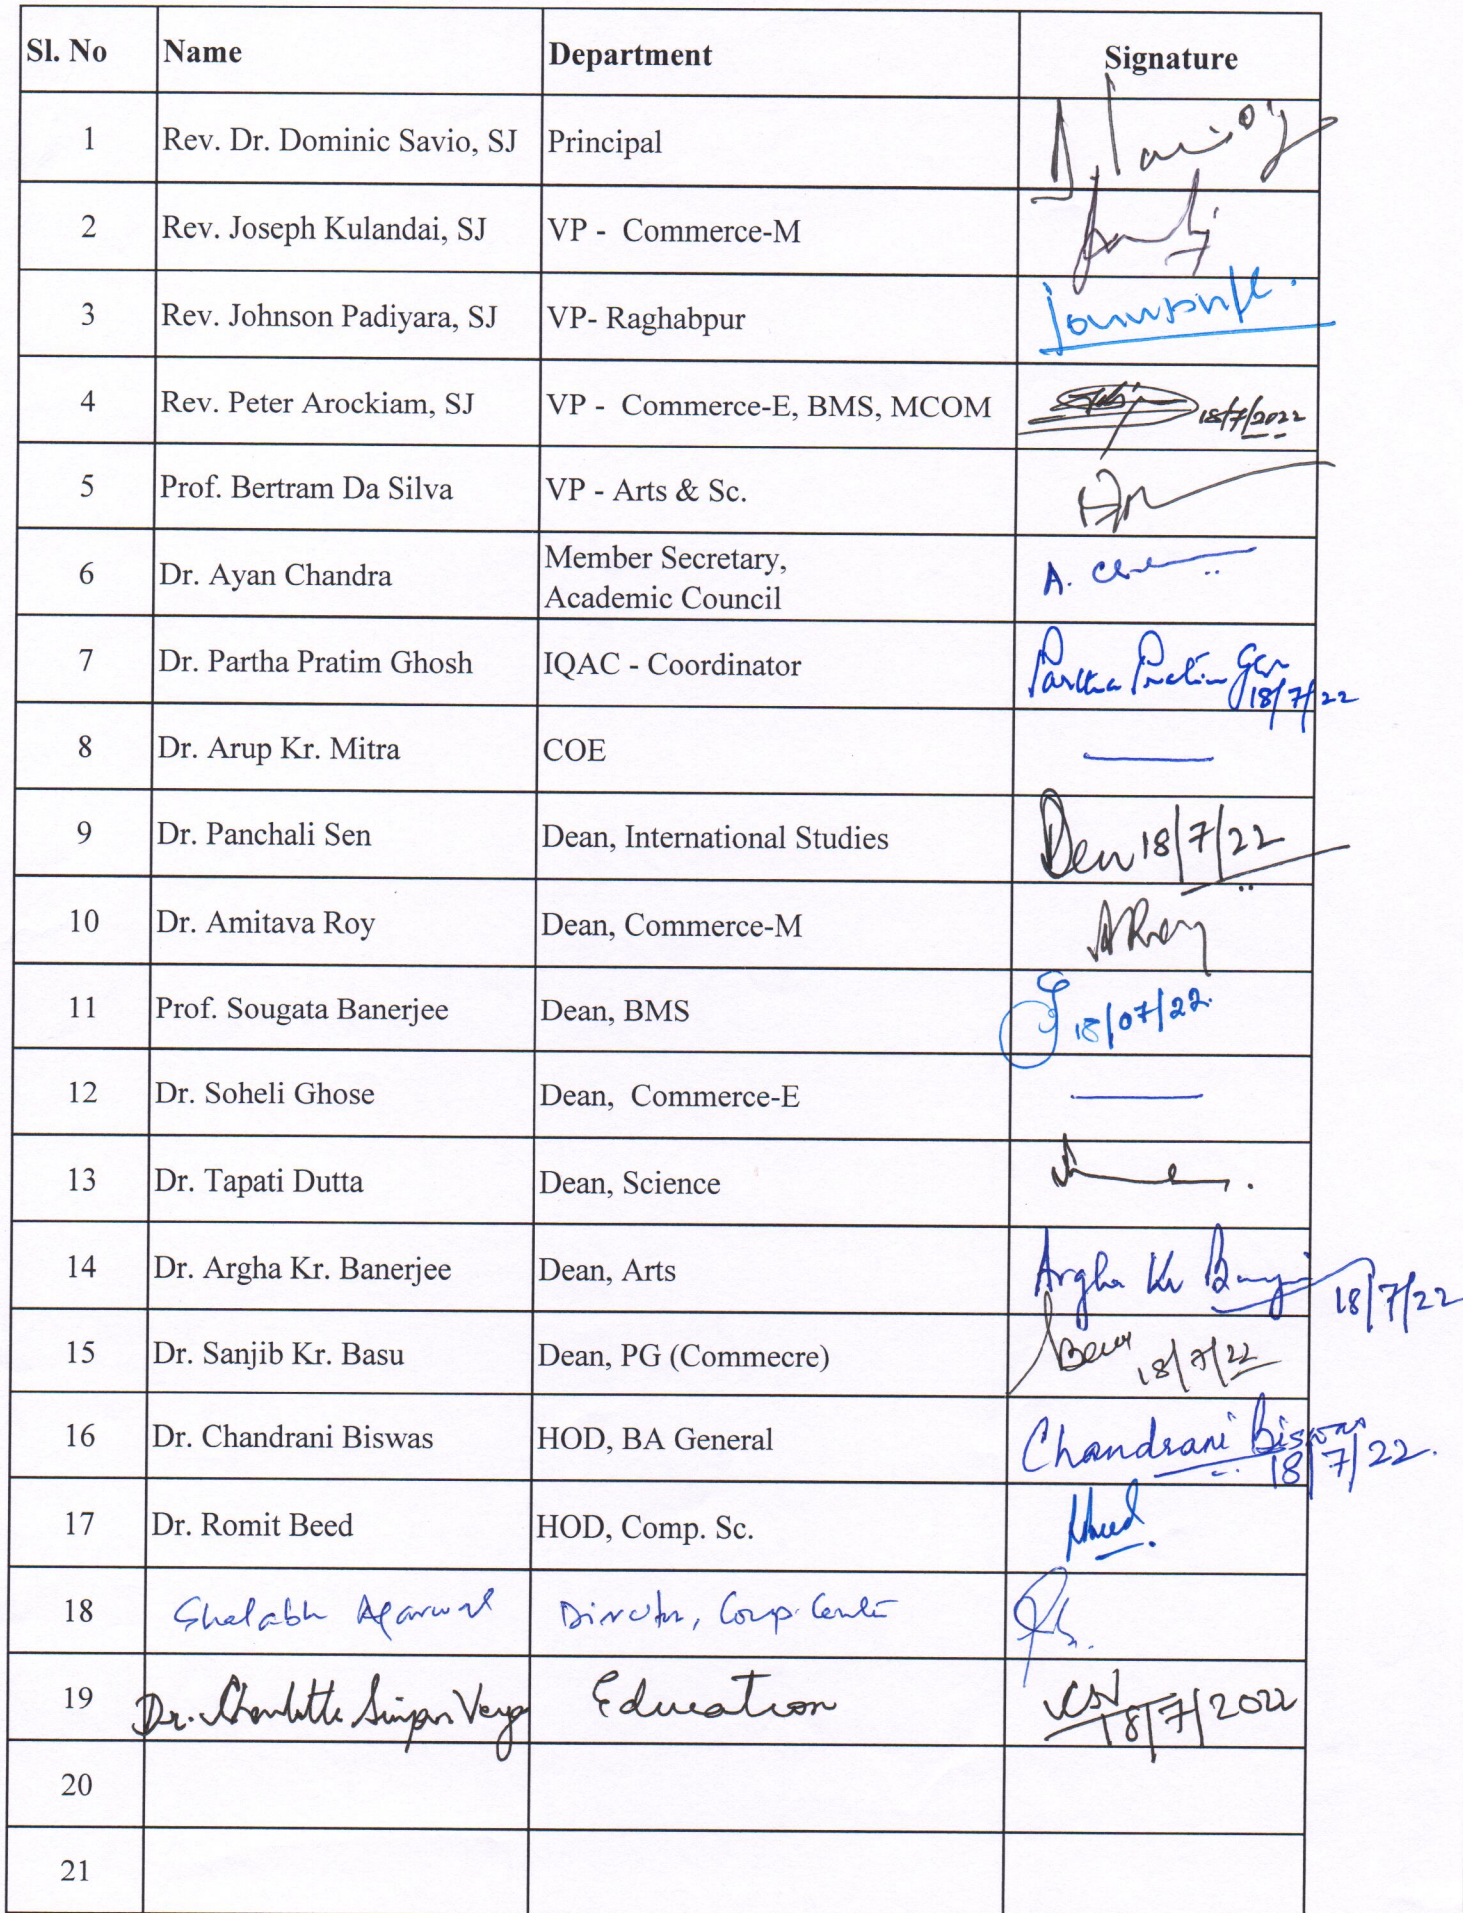 Sl. No Name Department Signature
1 Rev. Dr. Dominic Savio, SJ Principal
2 Rev. Joseph Kulandai, SJ VP - Commerce-M
3 Rev. Johnson Padiyara, SJ VP- Raghabpur
4 Rev. Peter Arockiam, SJ VP - Commerce-E, BMS, MCOM 18/7/2022
5 Prof. Bertram Da Silva VP - Arts & Sc.
6 Dr. Ayan Chandra Member Secretary,
Academic Council A.
7 Dr. Partha Pratim Ghosh IQAC - Coordinator Partha Pratim
18/7/22
8 Dr. Arup Kr. Mitra COE
9 Dr. Panchali Sen Dean, International Studies 18/7/22
10 Dr. Amitava Roy Dean, Commerce-M ARoy
11 Prof. Sougata Banerjee Dean, BMS 18/07/22.
12 Dr. Soheli Ghose Dean, Commerce-E
13 Dr. Tapati Dutta Dean, Science
14 Dr. Argha Kr. Banerjee Dean, Arts Argha Kr 18/7/22
15 Dr. Sanjib Kr. Basu Dean, PG (Commecre) 18/7/22
16 Dr. Chandrani Biswas HOD, BA General Chandrani Biswas
18/7/22.
17 Dr. Romit Beed HOD, Comp. Sc.
18 Shalabh Agarwal Director, Comp. Centre
19 Dr. Charlotte Simpson Veigas Education 18/7/2022
20
21